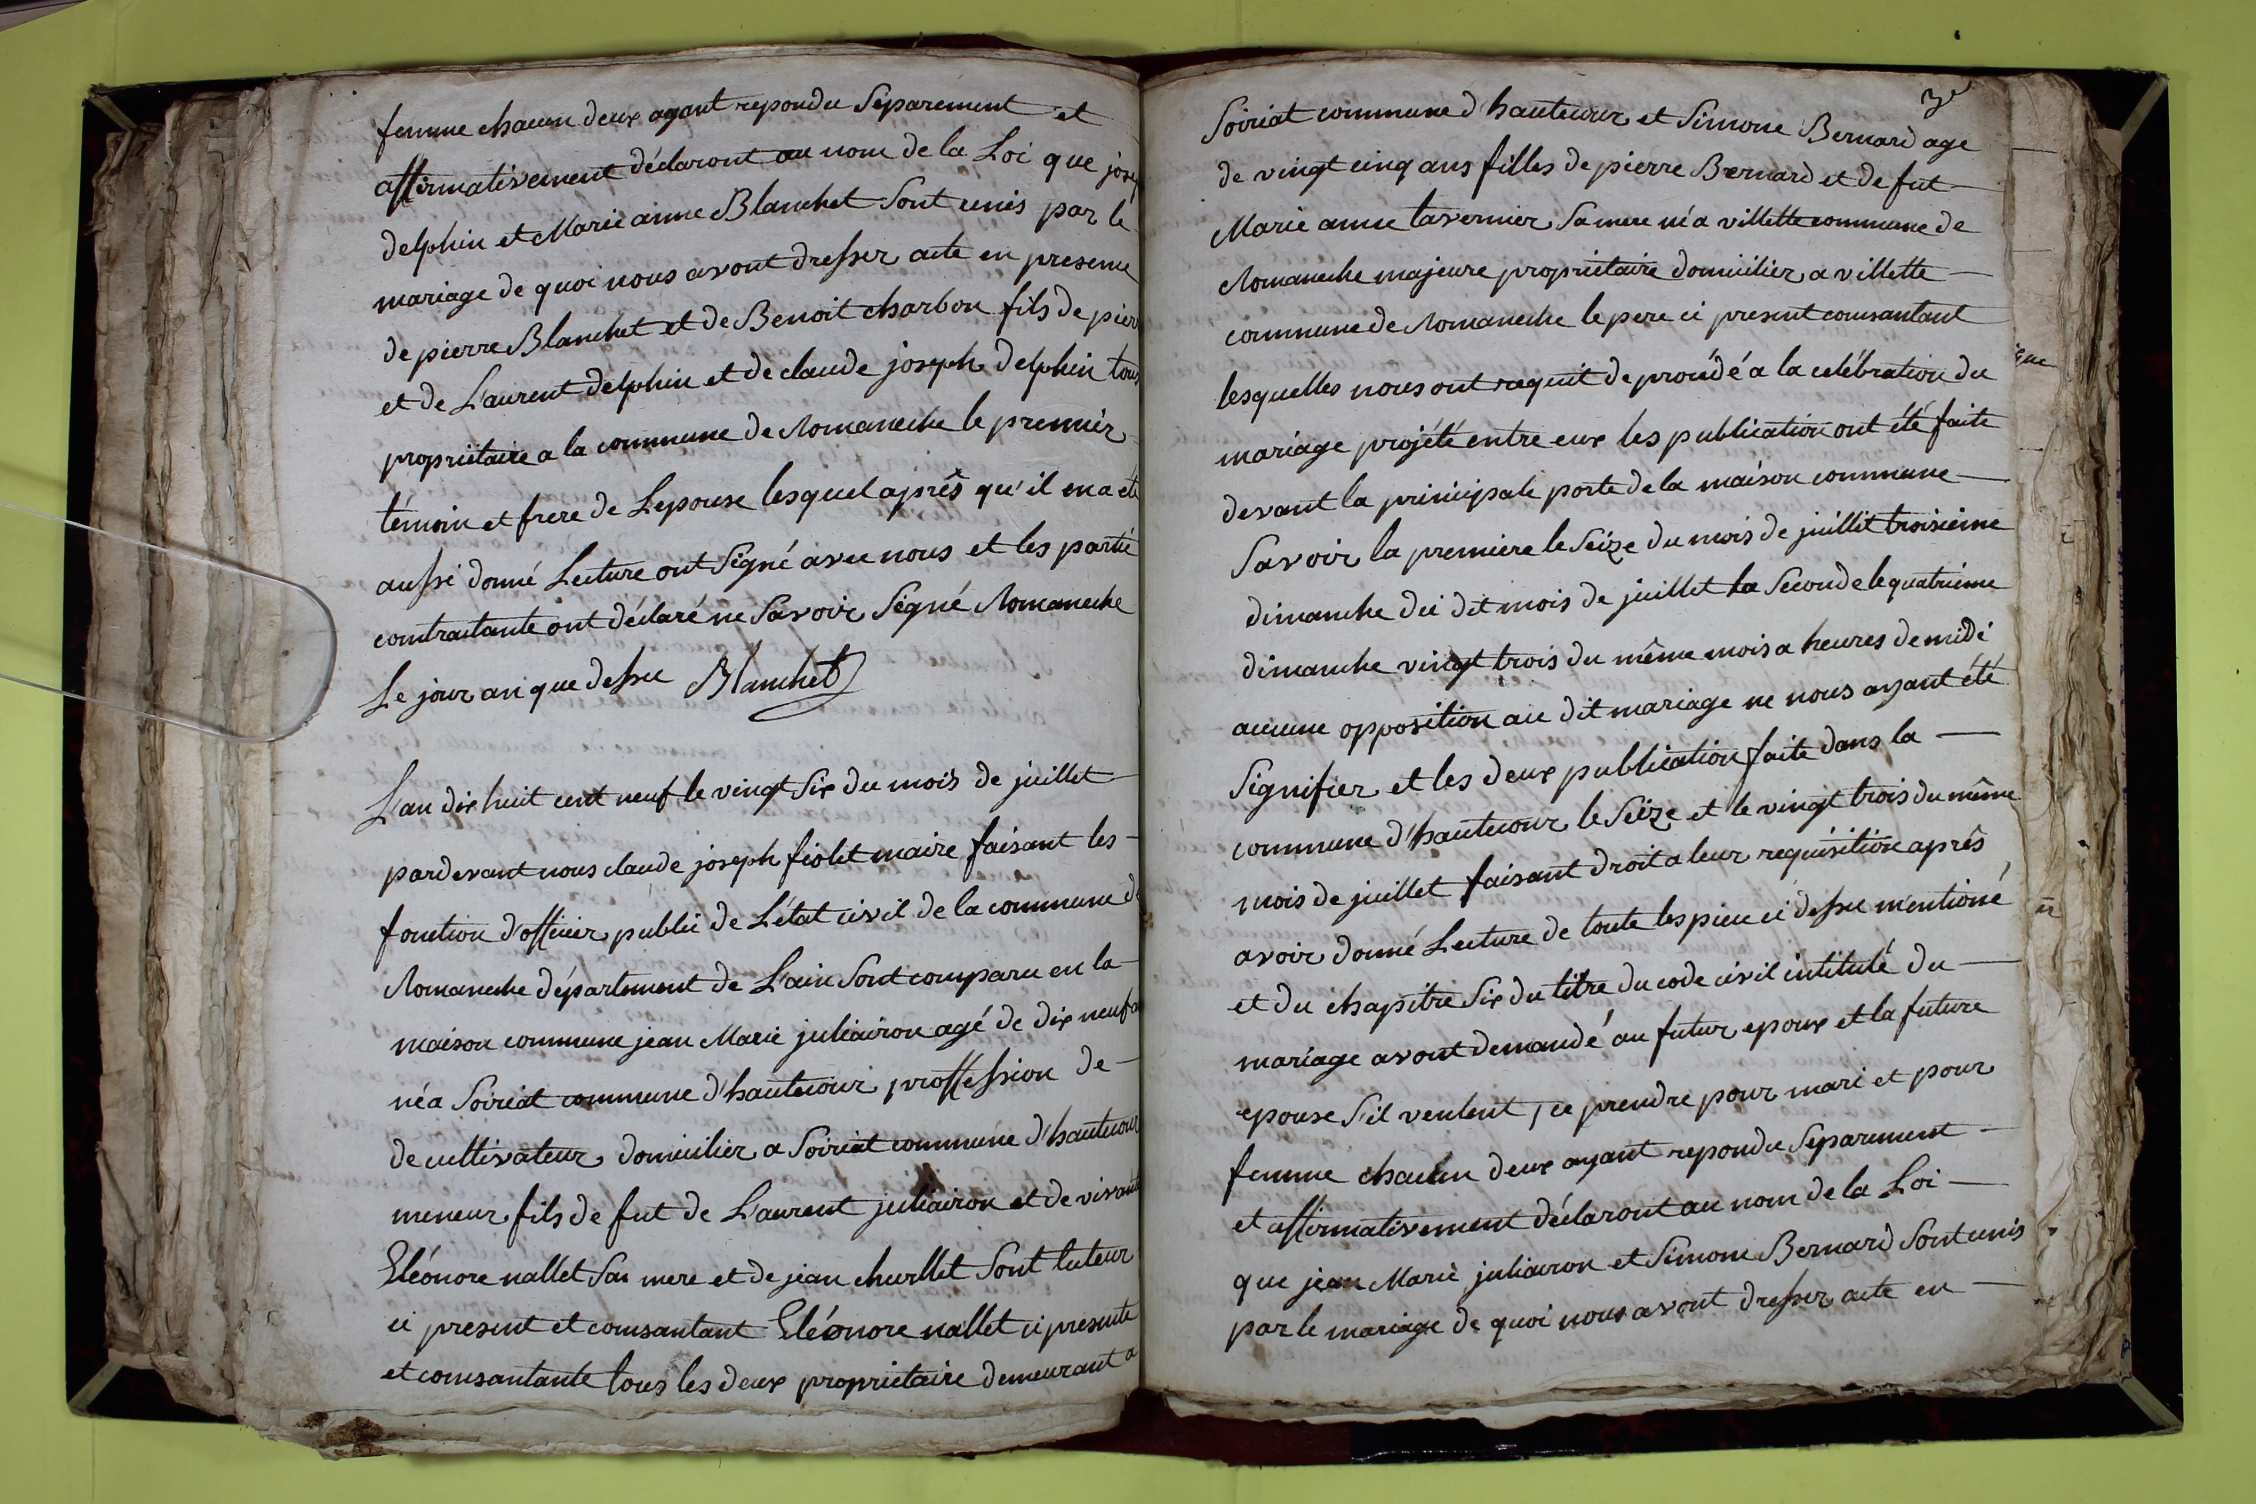 femme chacun deux ayant repondu Séparement et
affirmativement déclaront au nom de la Loi que josep
delphin et Marie anne Blanchet Sont unis par le
mariage de quoi nous avont dresser acte en presence
de pierre Blanchet et de Benoit charbon fils de pierr
et de Laurent delphin et de claude joseph delphin tous
propriétaire a la commune de Romaneche le premier
témoin et frere de Lepouse lesquel après qu'il en a été
aussi donné Lecture ont Signé avec nous et les partie
contractante ont déclaré ne Savoir Signé Romaneche
Le jour an que dessu Blanchet
L'an dix huit cent neuf le vingt Six du mois de juillet
pardevant nous claude joseph fiolet maire faisant les
fonction d'officier public de L'état civil de la commune de
Romaneche département de L'ain Sont comparu en la
maison commune jean Marie juliairon agé de dix neuf an
né a Soiriat commune d'hautecour proffession de
de cultivateur domicilier a Soiriat commune d'hautecour
meneur fils de fut de Laurent juliairon et de vivante
Eléonore nallet Sa mere et de jean churllet Sont tuteur
ci present et consantant Eléonore nallet ci presente
et consantante tous les deux proprietaire demeurant a
3e
Soiriat commune d'hautecour et Simone Bernard age
de vingt cinq ans filles de pierre Bernard et de fut
Marie anne tavernier Sa mere né a villette commune de
Romaneche majeure propriétaire domicilier a villette
commune de Romaneche le pere ci present consantant
lesquelles nous ont requit de procédé a la celébration du
mariage projété entre eux les publication ont été faite
devant la principale porte de la maison commune
Savoir la premiere le Seize du mois de juillet troisième
dimanche du dit mois de juillet la Seconde le quatrième
dimanche vingt trois du même mois a heures de midi
aucune opposition au dit mariage ne nous ayant été
Signifier et les deux publication faite dans la
commune d'hautecour le Seize et le vingt trois du même
mois de juillet faisant droit a leur requisition après
avoir donné Lecture de toute les piece ci dessu mentioné
et du chapitre Six du titre du code civil intitulé du
mariage avont demandé au futur epoux et la future
epouse S'il veulent ce prendre pour mari et pour
femme chacun deux ayant repondu Séparement
et affirmativement déclaront au nom de la Loi
que jean Marie juliairon et Simone Bernard Sont unis
par le mariage de quoi nous avont dresser acte en